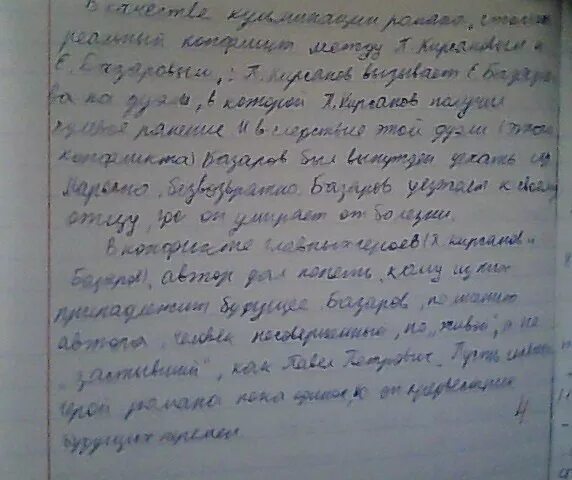 В качестве кульминации романа, стоит
реальный конфликт между П. Кирсановым и
Е. Базаровым, : П. Кирсанов вызывает Е. Базаро
ва на дуэль, в которой П. Кирсанов получил
пулевое ранение. И в следствие этой дуэли (этого
конфликта) Базаров был вынужден уехать из
Марьино безвозвратно. Базаров уезжает к своему
отцу, где он умирает от болезни.
В конфликте главных героев (П. Кирсанов и
Базаров), автор дал понять, кому из них
принадлежит будущее. Базаров, по
автора, человек несовершенный, но „живой", а не
„застывший", как Павел Петрович. Пусть
герой романа пока одинок, но он предвестник
будущих перемен.
4